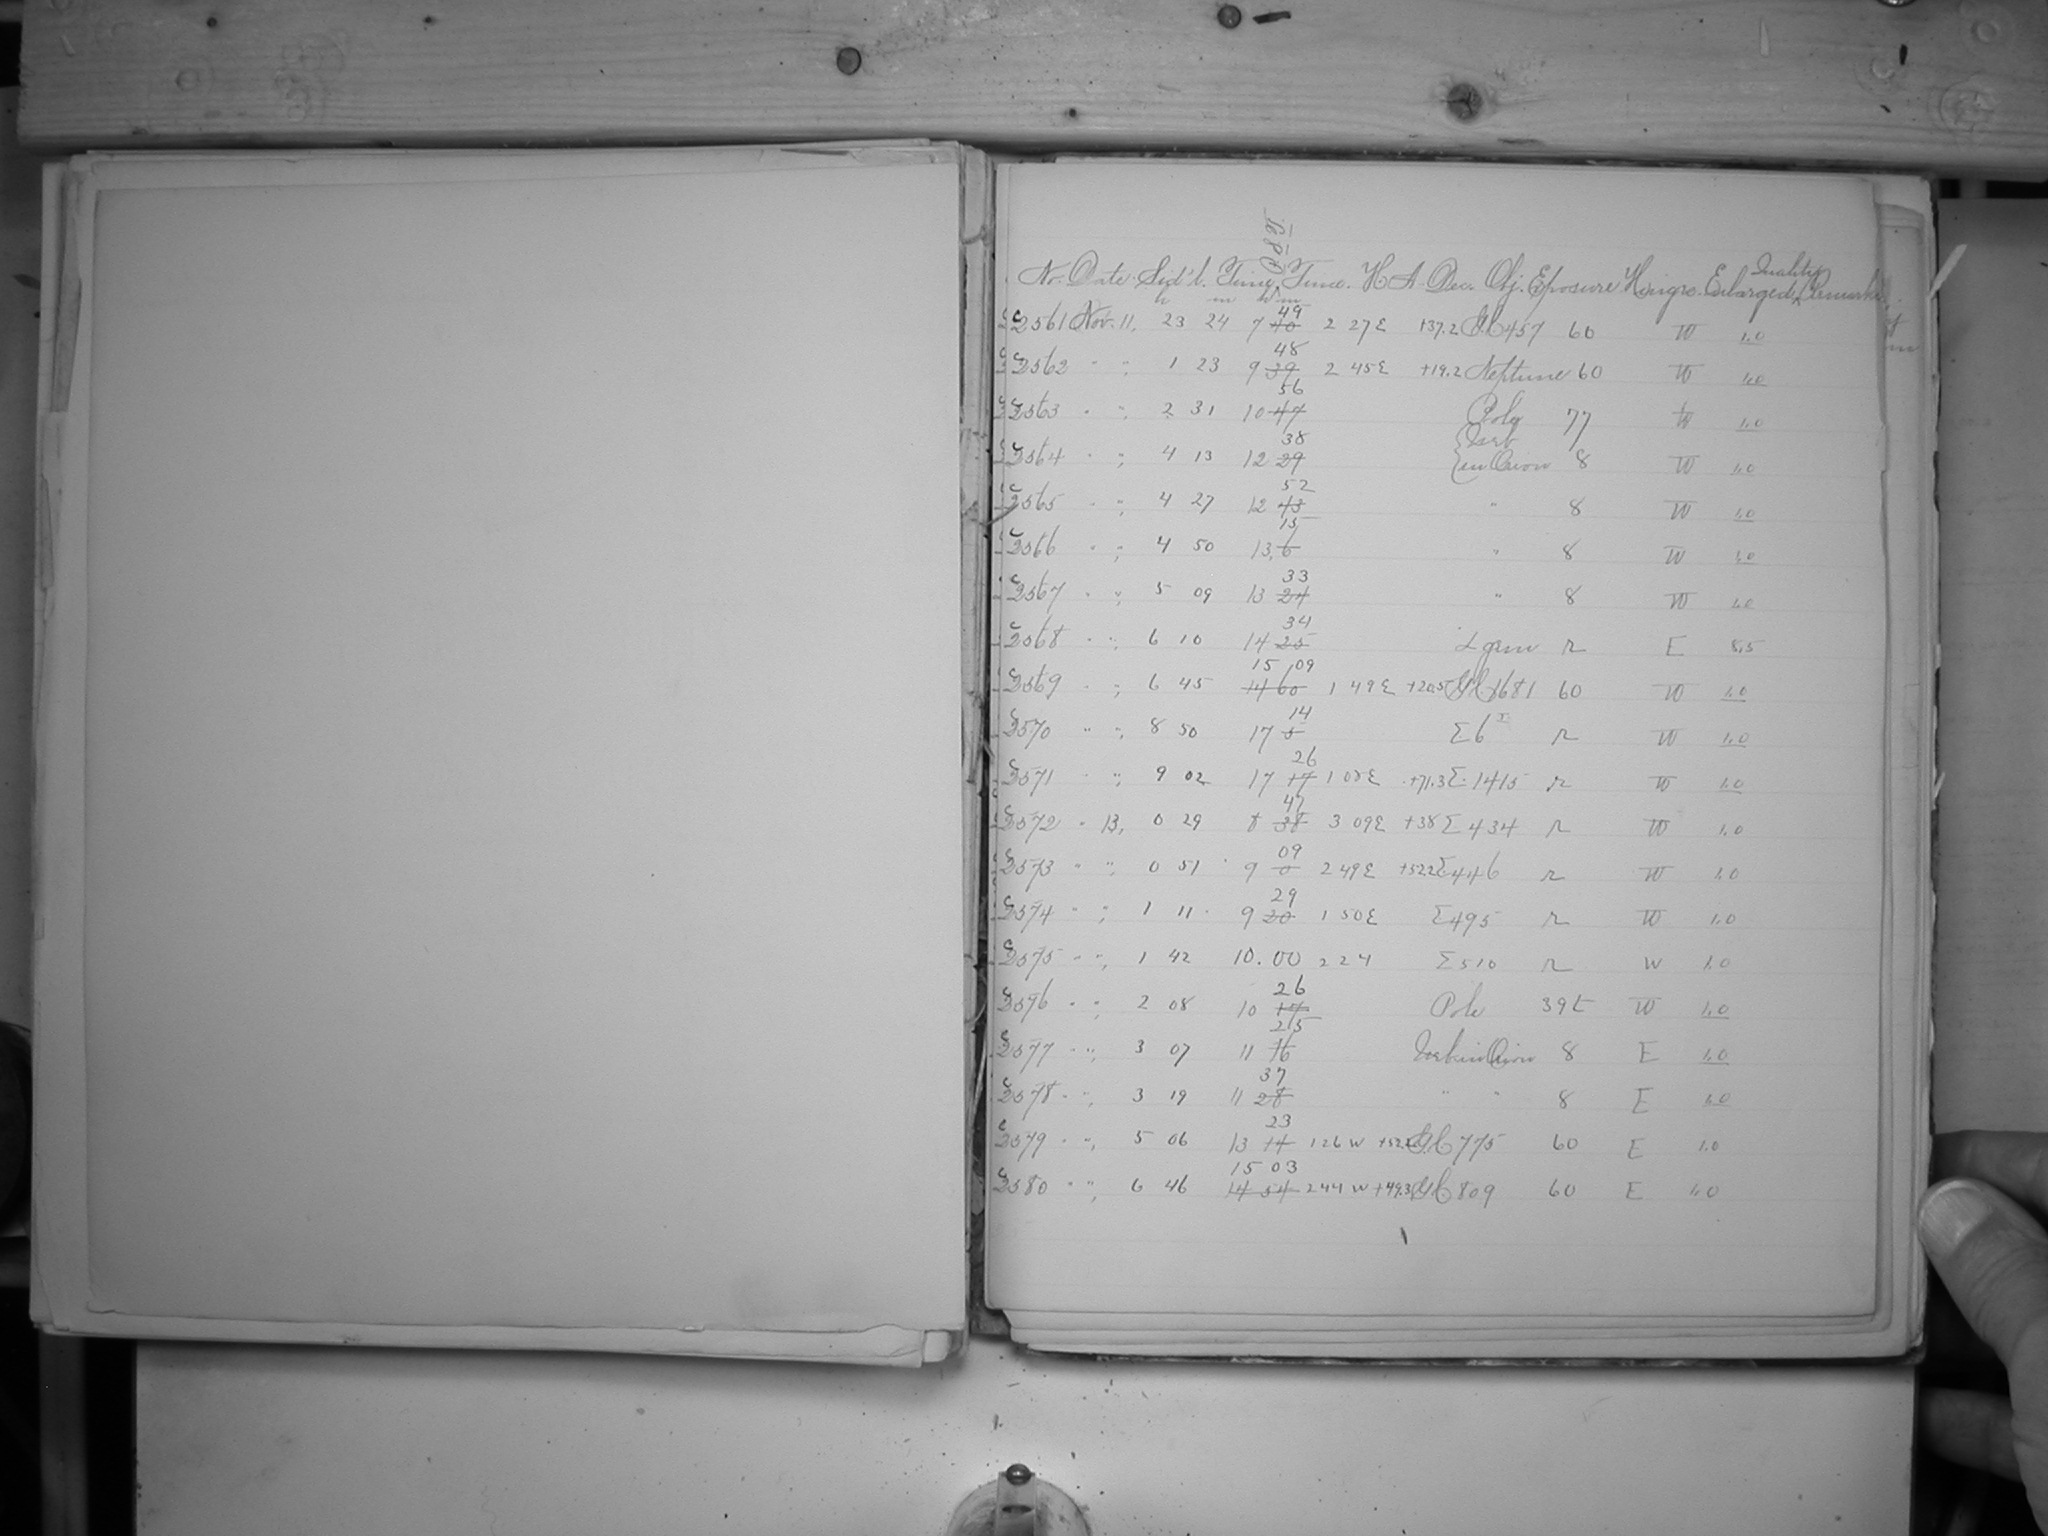 Quality
No. Date. Sid'l. Time. Time. H A. Dec. Obj. Exposure Enlarged, Remarks
h m h m
49
C 2561 Nov. 11, 23 24 7 40 2 27 E +37.2 G.C. 457 60 W 1.0
48
C 2562 " " 1 23 9 39 2 45 E +19.2 Neptune 60 W 1.0
56
C 2563 " " 2 31 10 47 Pole 77 W 1.0
38
C 2564 " " 4 13 12 29 in Orion 8 W 1.0
52
C 2565 " " 4 27 12 43 " 8 W 1.0
15
C 2566 " " 4 50 13, 6 " 8 W 1.0
33
C 2567 " " 5 09 13 24 " 8 W 1.0
34
C 2568 " " 6 10 14 25 r E 8.5
15 09
C 2569 " " 6 45 14 60 1 49 E +20.5 G.C. 1681 60 W 1.0
14
C 2570 " " 8 50 17 5 Σ 6 r W 1.0
26
C 2571 " " 9 02 17 17 1 08 E +71.3 Σ 1415 r W 1.0
47
C 2572 " 13, 0 29 8 38 3 09 E +38 Σ 434 r W 1.0
09
C 2573 " " 0 51 9 0 2 49 E +52.2 Σ 446 r W 1.0
29
C 2574 " " 1 11 9 20 1 50 E Σ 495 r W 1.0
C 2575 " " 1 42 10.00 2 24 Σ 510 r W 1.0
26
C 2576 " " 2 08 10 17 Pole 39 t W 1.0
25
C 2577 " " 3 07 11 16 in Orion 8 E 1.0
37
C 2578 " " 3 19 11 28 " " 8 E 1.0
23
C 2579 " " 5 06 13 14 1 26 W +52.2 G.C. 775 60 E 1.0
15 03
C 2580 " " 6 46 14 54 2 44 W +49.3 G.C. 809 60 E 1.0